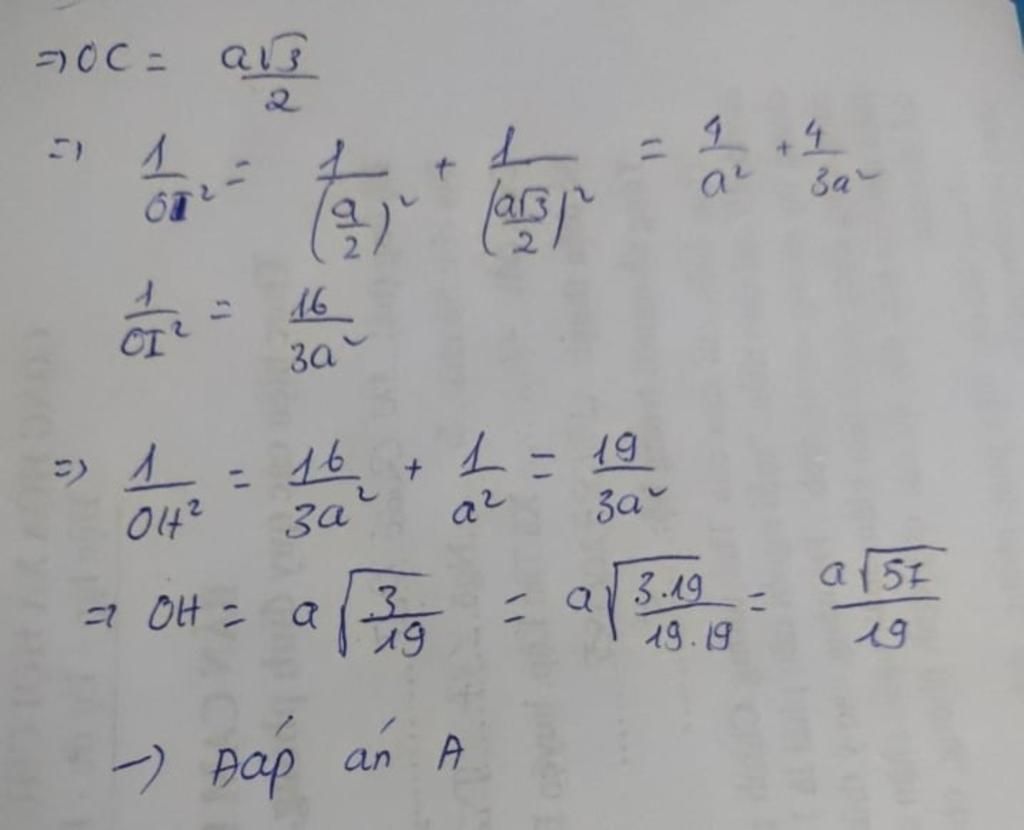 ⇒ OC = a√3/2
⇒ 1/OI² = 1/(a/2)² + 1/(a√3/2)² = 4/a² + 4/3a²
1/OI² = 16/3a²
⇒ 1/OH² = 16/3a² + 1/a² = 19/3a²
⇒ OH = a√(3/19) = a√(3.19/19.19) = a√57/19
→ Đáp án A